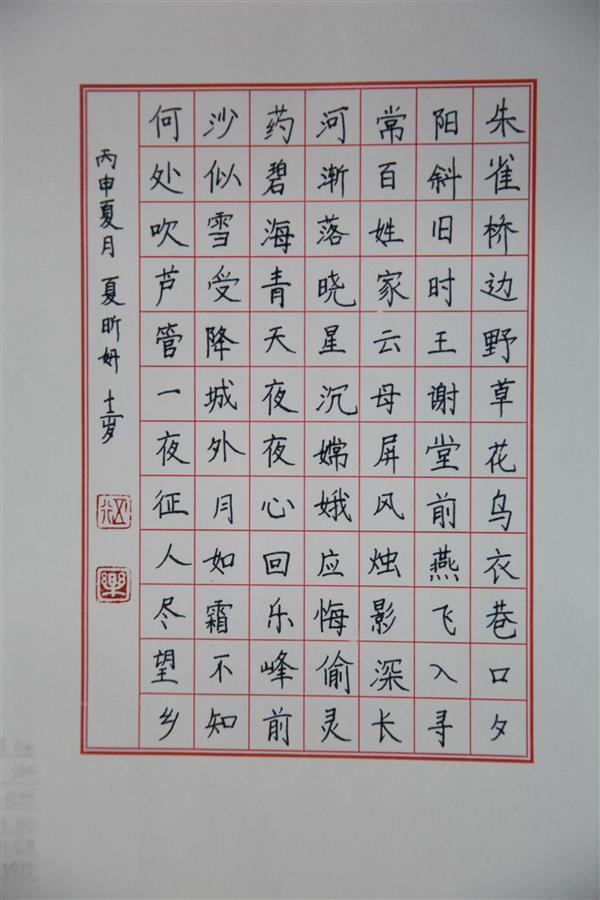 朱雀桥边野草花乌衣巷口夕
阳斜旧时王谢堂前燕飞入寻
常百姓家云母屏风烛影深长
河渐落晓星沉嫦娥应悔偷灵
药碧海青天夜夜心回乐峰前
沙似雪受降城外月如霜不知
何处吹芦管一夜征人尽望乡
丙申夏月 夏昕妍 十一岁